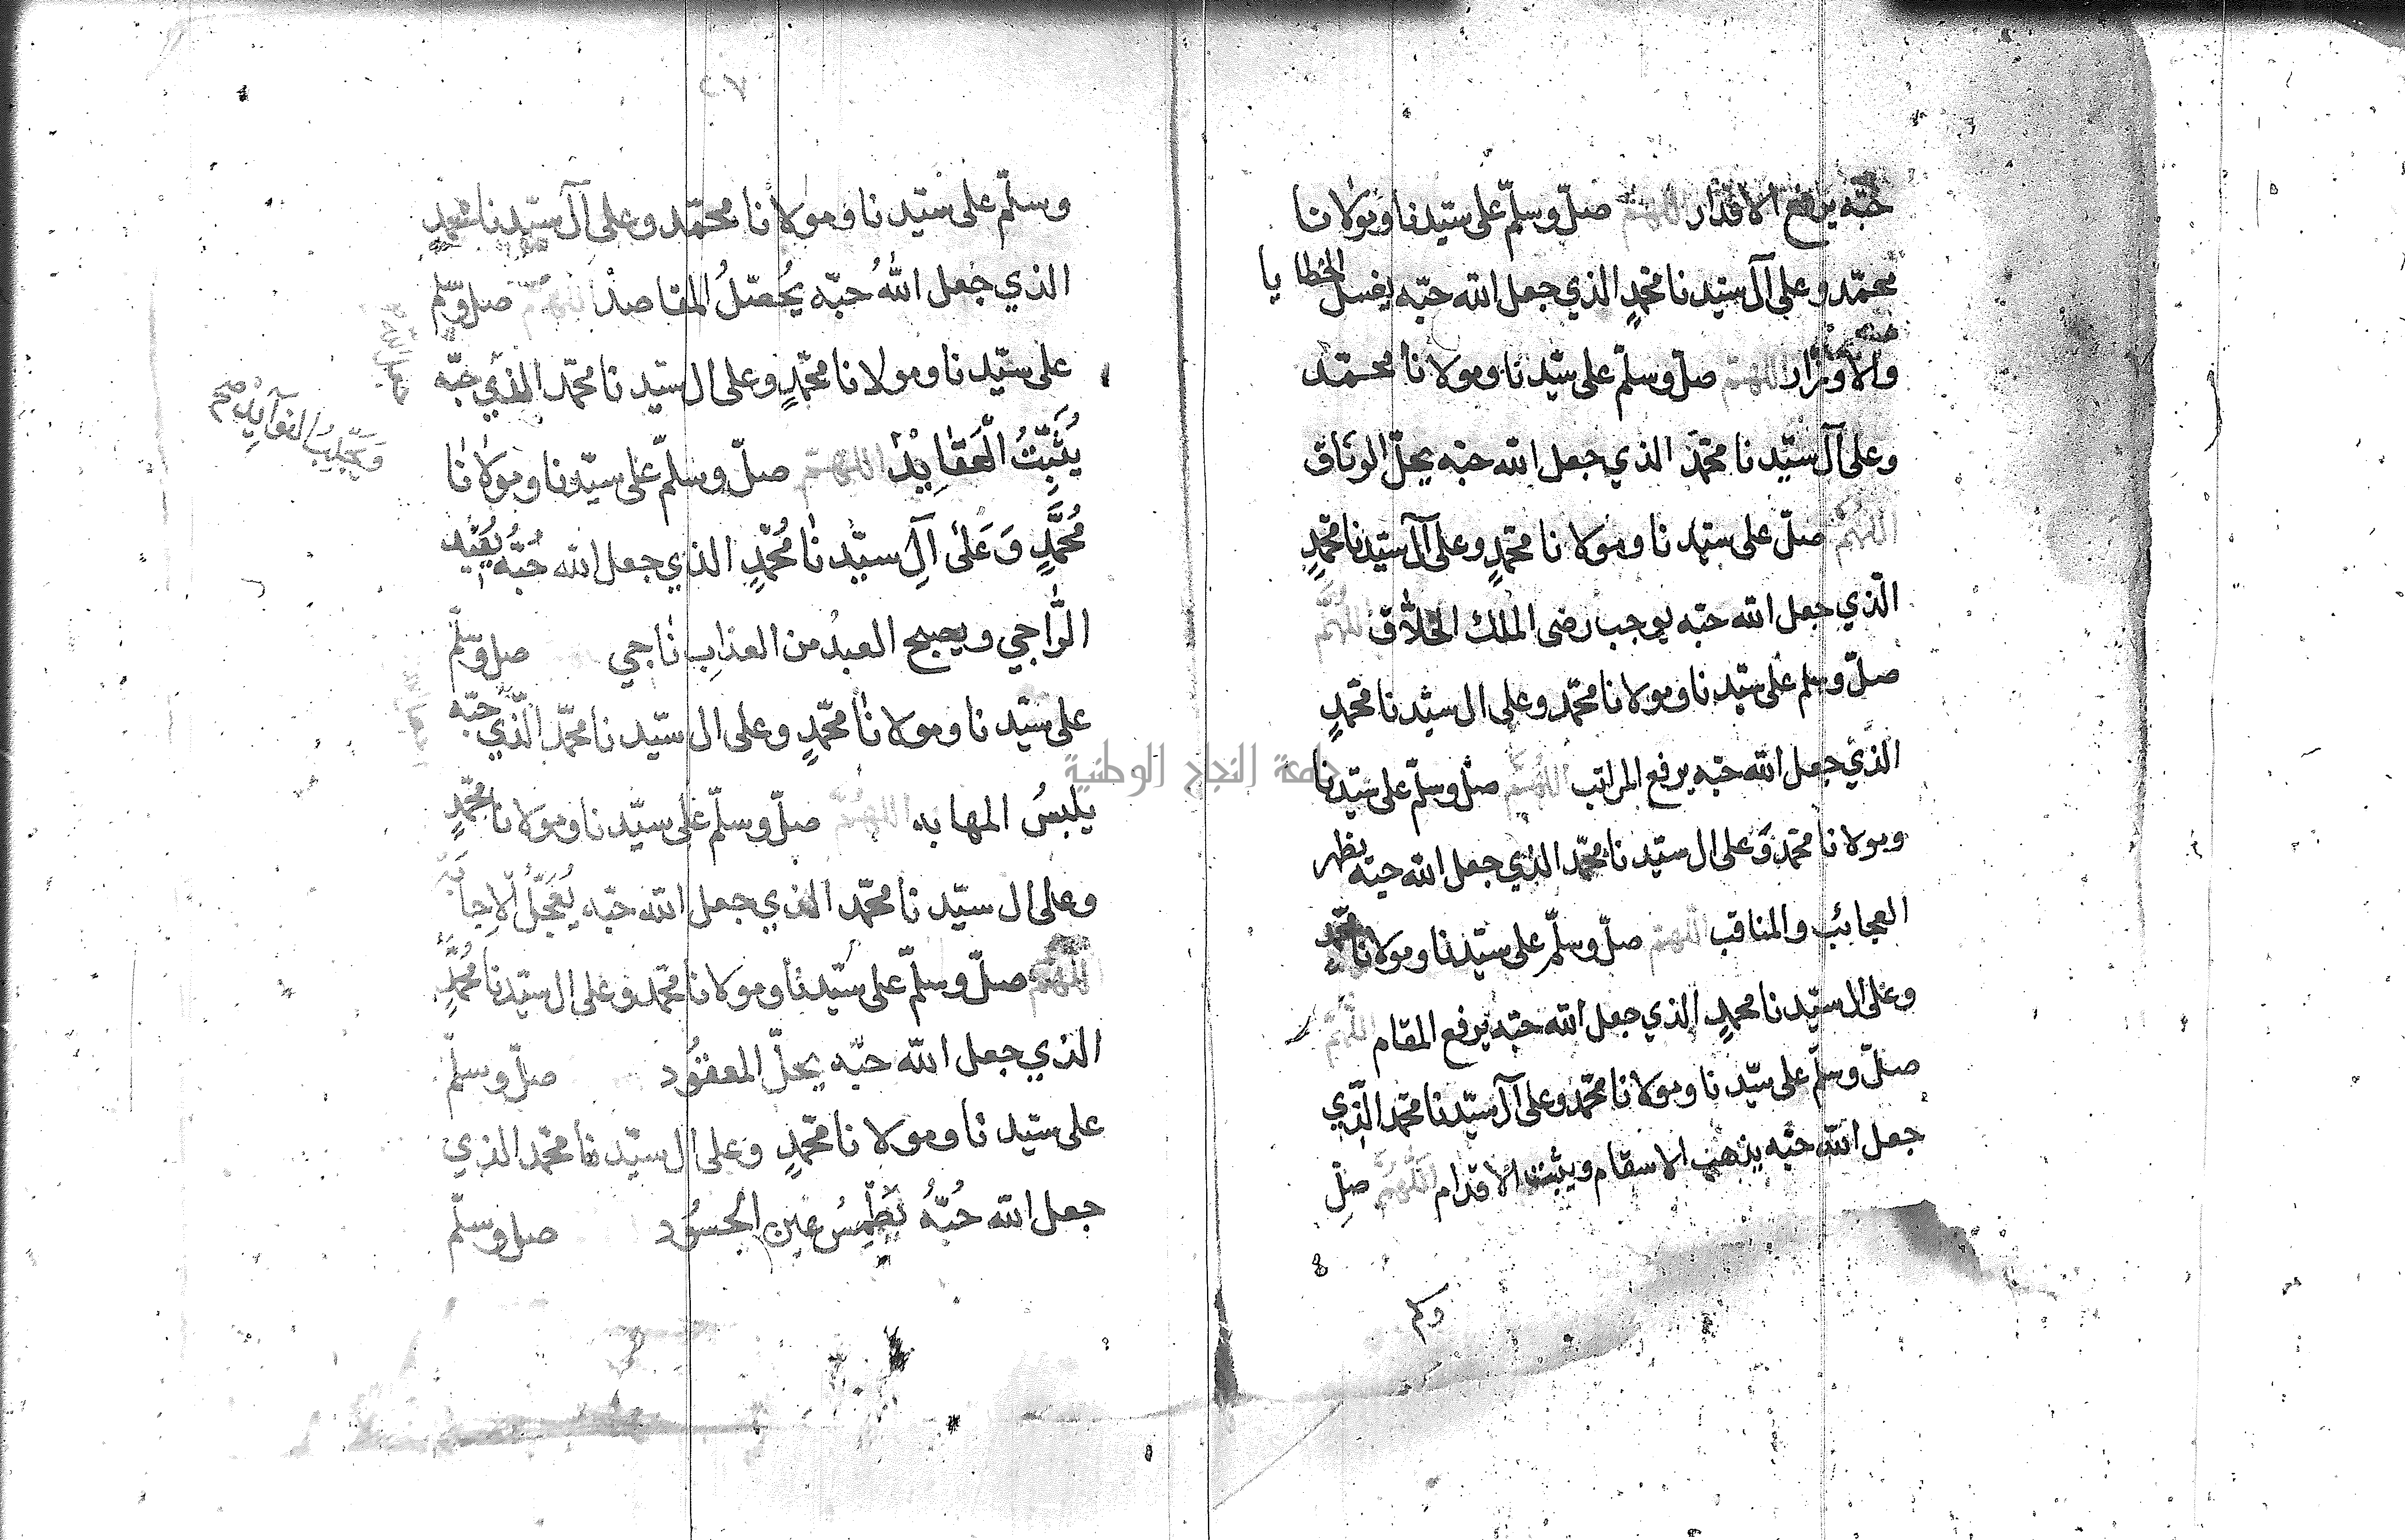 حبّه يرفع الاقدار اللهم صلّ وسلّم على سيّدنا ومولانا
محمّد وعلى آل سيّدنا محمّدٍ الذي جعل الله حبّه يغسل الخطايا
والأوزار اللهم صلّ وسلّم على سيّدنا ومولانا محمّد
وعلى آل سيّدنا محمّد الذي جعل الله حبّه يحلّ الوثاق
اللهُمَّ صلّ على سيّدنا ومولانا محمّدٍ وعلى آل سيّدنا محمّدٍ
الّذي جعل الله حبّه يوجب رضى الملك الخلّاق اللهُمَّ
صلّ وسلم على سيّدنا ومولانا محمّد وعلى ال سيّدنا محمّدٍ
الذي جعل الله حبّه يرفع المراتب اللهم صلّ وسلّم على سيّدنا
ومولانا محمّد وَعلى ال سيّدنا محمّد الذي جعل الله حبّه يظهر
العجائب والمناقب اللهم صلّ وسلّم على سيّدنا ومولانا محمّد
وعلى ال سيّدنا محمدٍ الذي جعل الله حبّه يرفع المقام اللّهُمّ
صلّ وسلّم على سيّدنا ومولانا محمّد وعلى آل سيّدنا محمّد الّذي
جعل الله حبّه يذهب الاسقام ويثبت الاقدام اللّهُمَّ صلِّ
وكم
٢٠٧
وسلّم على سيّدنا ومولانا محمّد وعلى آل سيّدنا محمّدٍ
الذي جعل اللهُ حبّه يُحصّلُ المقاصدْ اللهمّ صلّ وسلّم
على سيّدنا ومولانا محمّدٍ وعلى ال سيّدنا محمّد الذي حبّه
جعل الله
يُثَبِّتُ الْعَقَايِدْ اللهم صلّ وسلّم على سيّدنا ومولانا
ويجلِبُ الفوآيِدْ صح
مُحَمَّدٍ وَعَلىٰ آلِ سيّدنا مُحمّدٍ الذي جعل الله حُبَّهُ
الرَّاجي ويصبح العبدُ من العذاب ناجي صل وسلّم
على سيّدنا ومولانا محمّدٍ وعلى ال سيّدنا محمّد الّذي حبّه
يلبسُ المهابه اللهُمَّ صلّ وسلّم على سيّدنا ومولانا محمّدٍ
وعلى ال سيّدنا محمّد الذي جعل الله حبّه يُعَجِّلُ الاِجابَه
اللّهُمَّ صلّ وسلّم على سيّدنا ومولانا محمّد وعلى ال سيّدنا مُحمَّدٍ
الذي جعل الله حبّه يحلّ المعقُود صلّ وسلّم
على سيّدنا ومولانا محمّدٍ وعلى ال سيّدنا محمّد الذي
جعل الله حُبَّهُ يَطْمِسُ عين الحسُود صل وسلّم
جامعة النجاح الوطنية